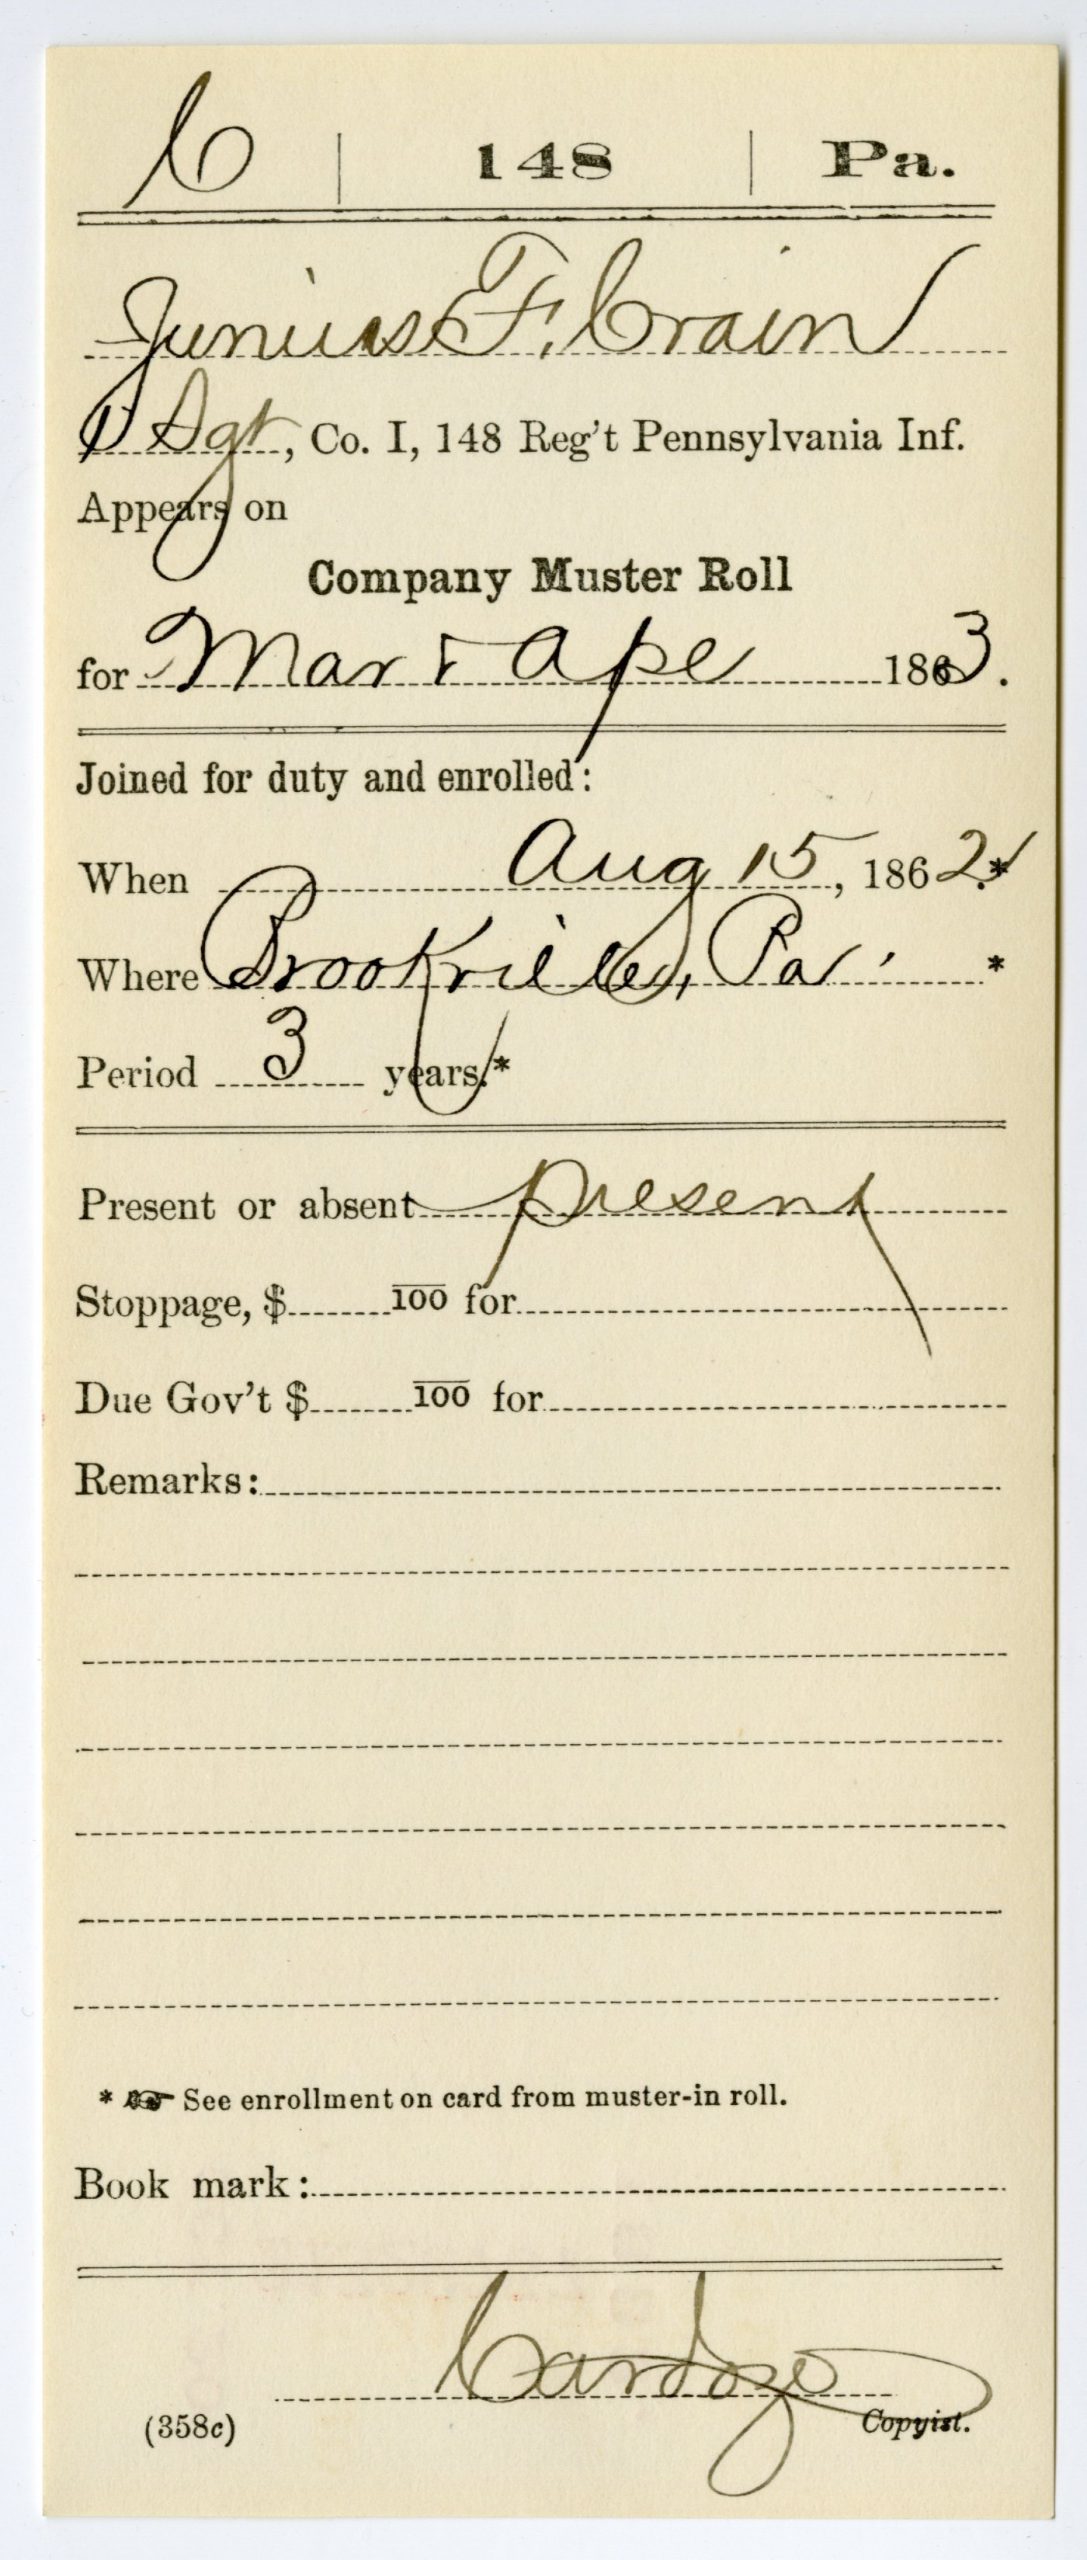 C | 148 | Pa.
Junius F. Crain
1 Sgt, Co. I, 148 Reg't Pennsylvania Inf.
Appears on
Company Muster Roll
for Mar & Apr 1863.
Joined for duty and enrolled:
When Aug 15, 1862.*
Where Brookville, Pa. *
Period 3 years.*
Present or absent present
Stoppage, $ 100 for
Due Gov't $ 100 for
Remarks:
* ☞ See enrollment on card from muster-in roll.
Book mark:
Cardozo
(358c) Copyist.